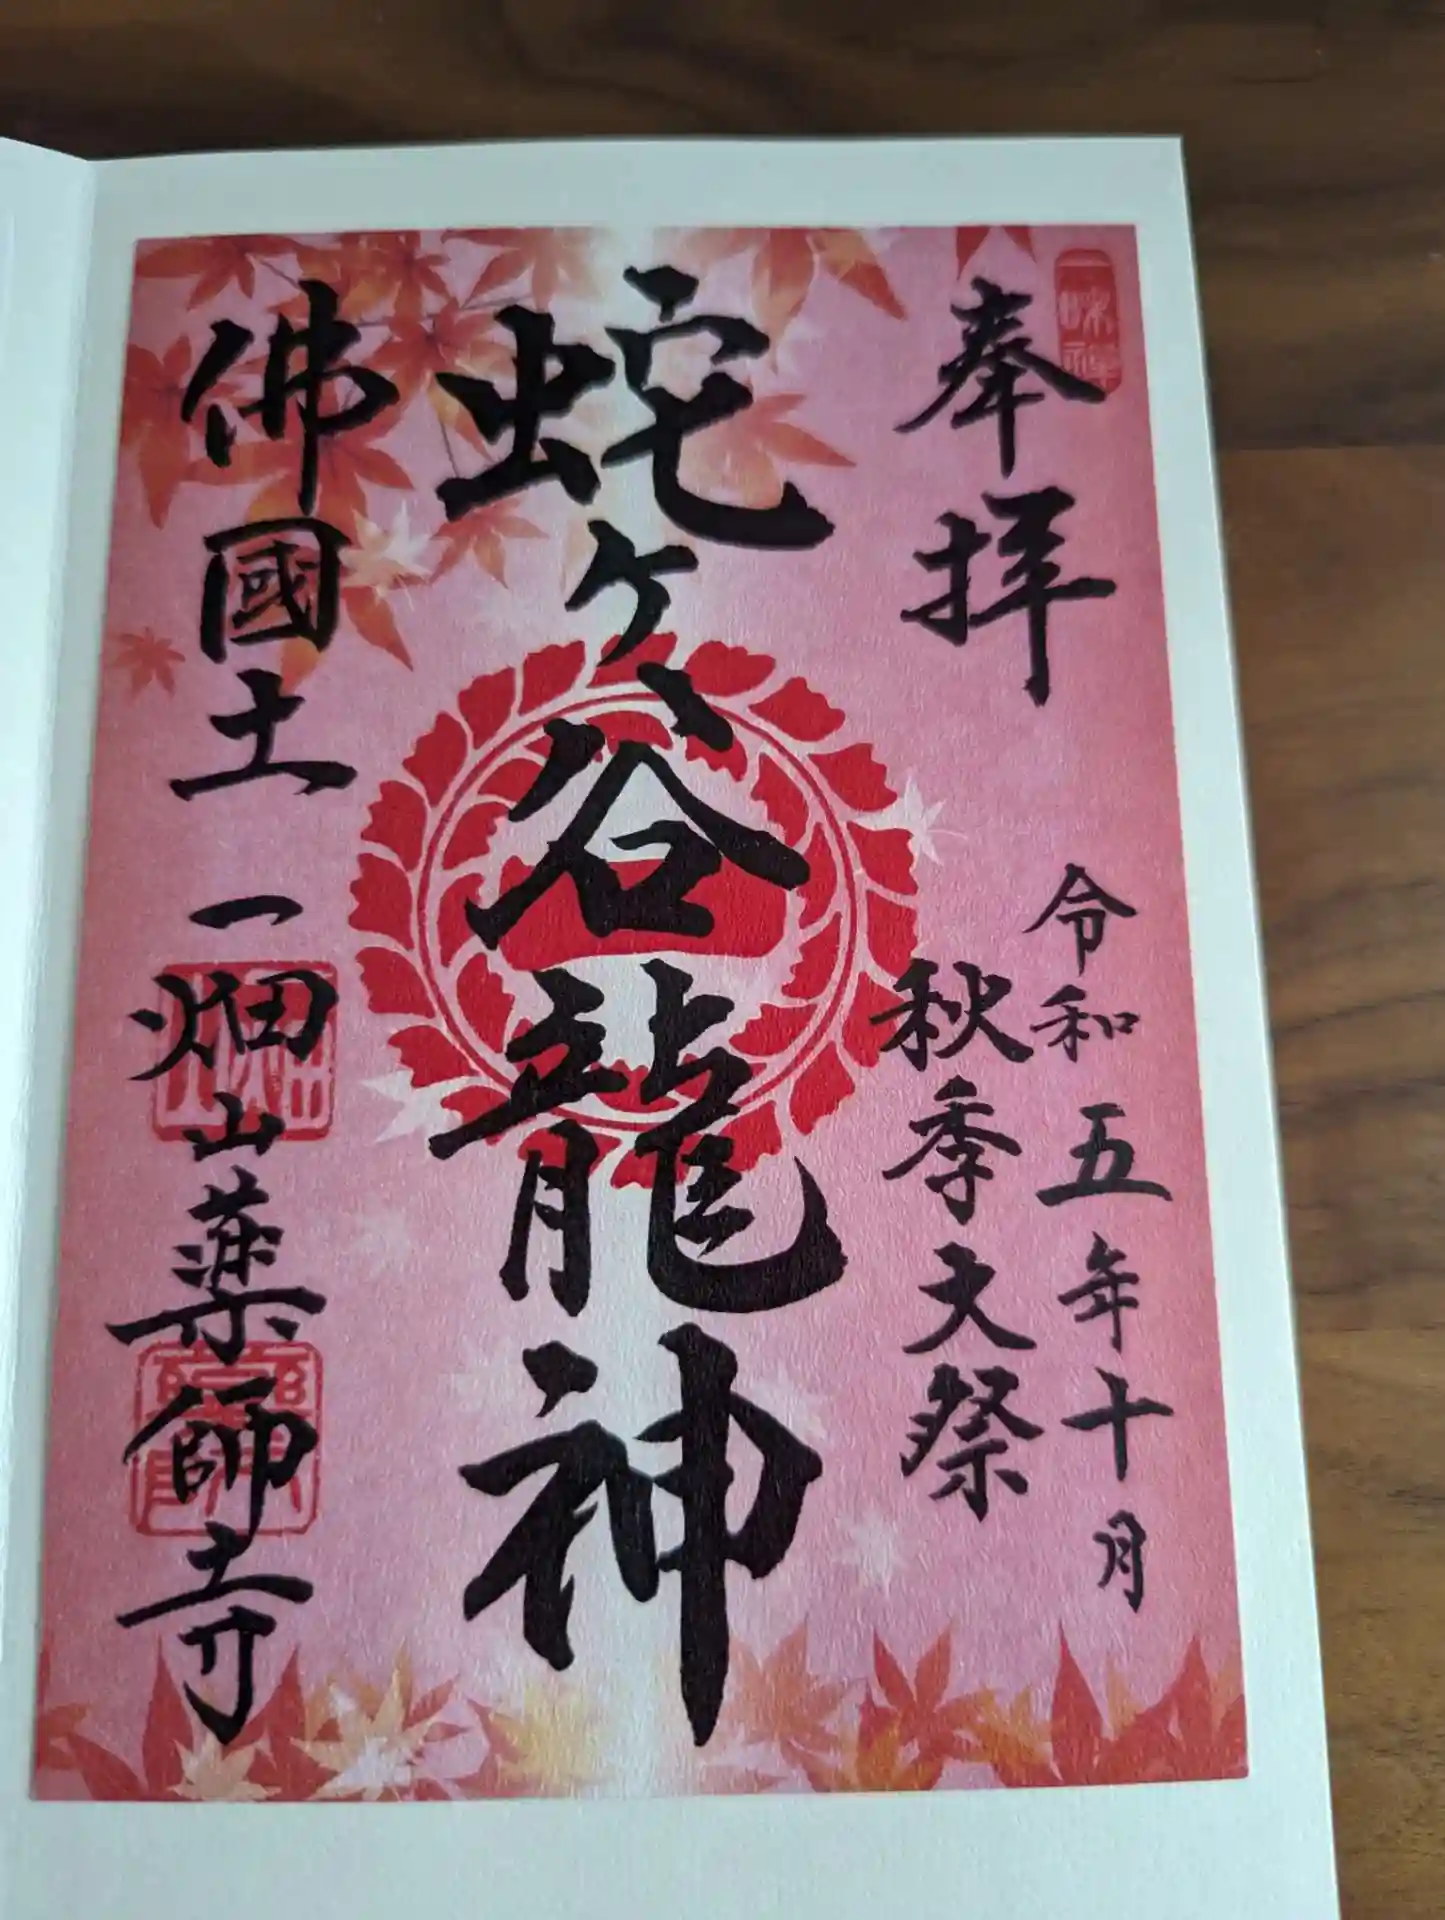 奉拝
令和五年十月
秋季大祭
蛇ヶ谷龍神
佛國土
一畑山薬師寺